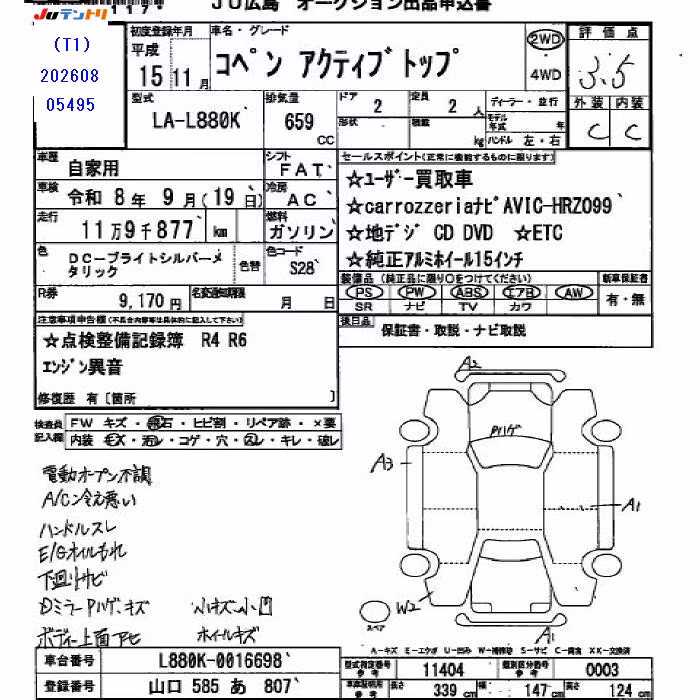 JU広島 オークション出品申込書
JUテントリ
(T1)
202608
05495
初度登録年月 車名・グレード
平成 15年 11月 コペン アクティブトップ 2WD 4WD
評価点 3.5
外装 内装
C C
型式 LA-L880K 排気量 659 cc
ドア 2 定員 2人 ディーラー・並行
形状 積載 kg モデル年式 年 ハンドル 左・右
車歴 自家用 シフト FAT
車検 令和 8年 9月(19日) 冷房 AC
走行 11万9千877 km 燃料 ガソリン
色 DC-ブライトシルバーメタリック 色替 色コード S28
R券 9,170円 名変期限 月 日
セールスポイント(正常に機能するものに限ります)
☆ユーザー買取車
☆carrozzeriaナビAVIC-HRZ099
☆地デジ CD DVD ☆ETC
☆純正アルミホイール15インチ
装備品 (純正品に限り○をつけてください) 新車保証書
PS PW ABS エアB AW 有・無
SR ナビ TV カワ
後日品 保証書・取説・ナビ取説
注意事項申告欄(不具合内容等は具体的に記入して下さい)
☆点検整備記録簿 R4 R6
エンジン異音
修復歴 有〔箇所 〕
検査員記入欄 FW キズ・飛石・ヒビ割・リペア跡・×要
内装 キズ・汚レ・コゲ・穴・スレ・キレ・破レ
電動オープン不調
A/C冷え悪い
ハンドルスレ
E/Gオイルもれ
下回りサビ
Dミラーハゲ、キズ 小キズ小凹
ボディー上面アセ ホイールキズ
A2
Pハゲ
A3
A1
W2
スペア
A1
A-キズ E-エクボ U-凹み W-補修跡 S-サビ C-腐食 XX-交換済
車台番号 L880K-0016698
登録番号 山口 585 あ 807
型式指定番号 参考 11404 類別区分番号 参考 0003
車庫証明用 参考 長さ 339cm 幅 147cm 高さ 124cm